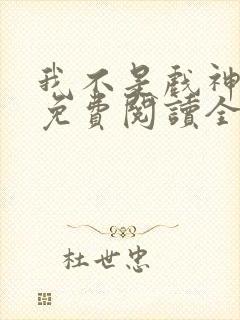 我不是戏神
免費閱讀全
杜世忠